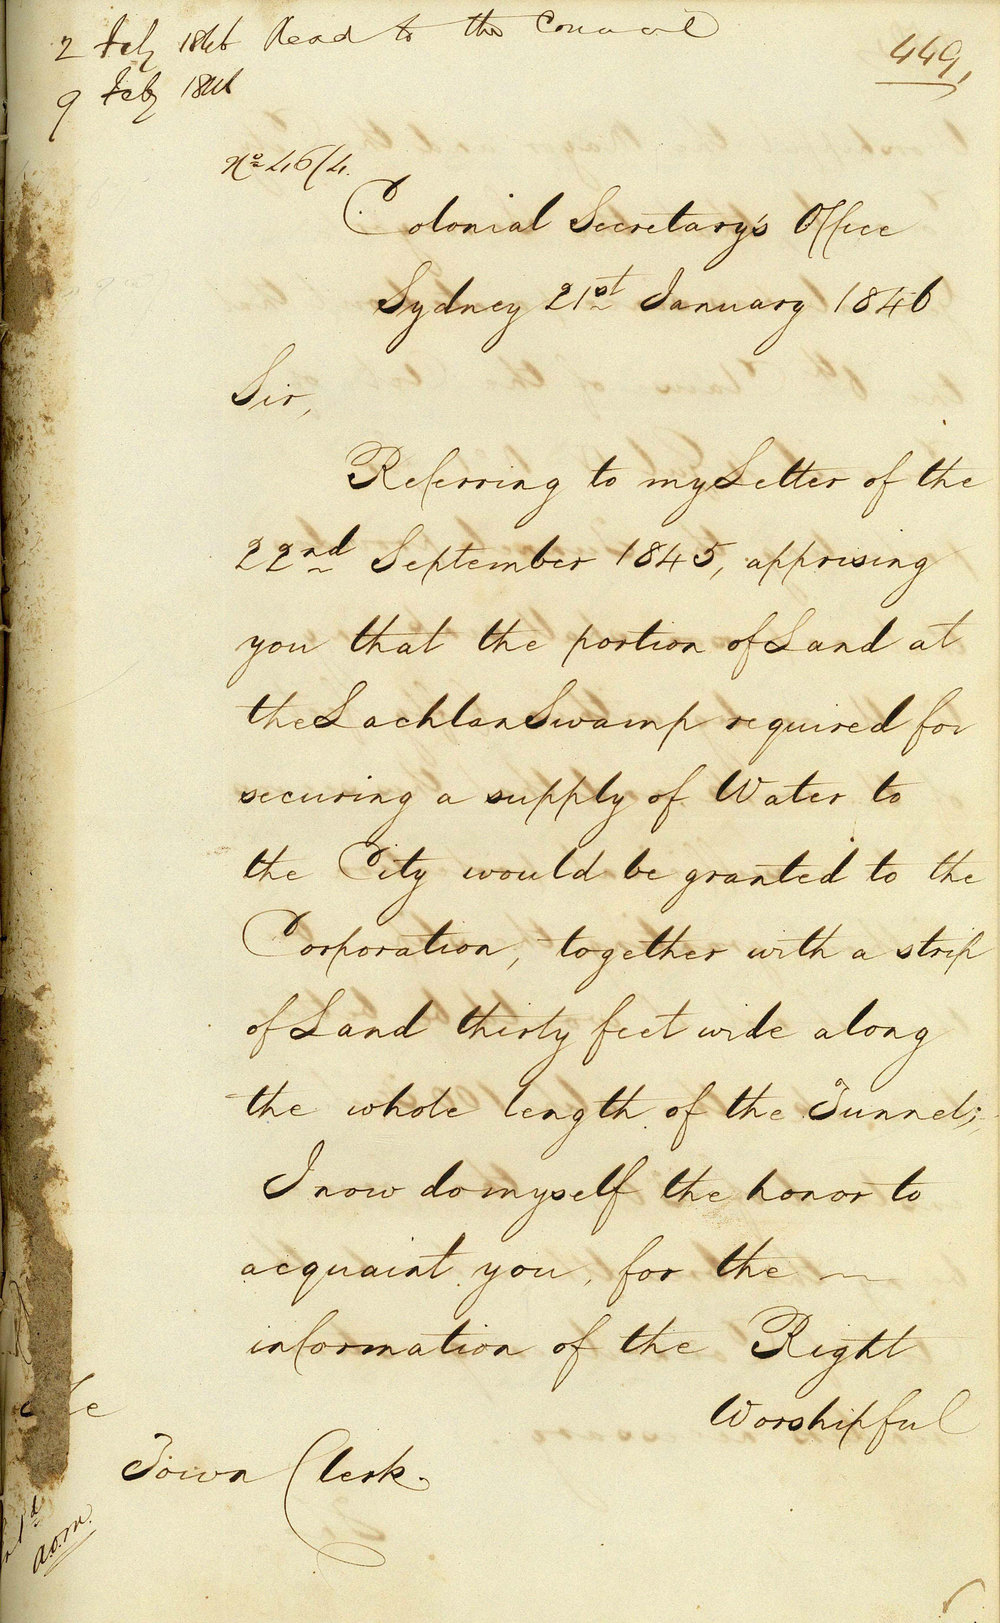 2 Feby 1846 Read to the Council
9 Feby 1846
449,
No. 46/4.
Colonial Secretary's Office
Sydney 21st January 1846
Sir,
Referring to my Letter of the
22nd September 1845, apprising
you that the portion of Land at
the Lachlan Swamp required for
securing a supply of Water to
the City would be granted to the
Corporation, together with a strip
of Land thirty feet wide along
the whole length of the Tunnel;
I now do myself the honor to
acquaint you, for the
information of the Right
Worshipful
The
Town Clerk.